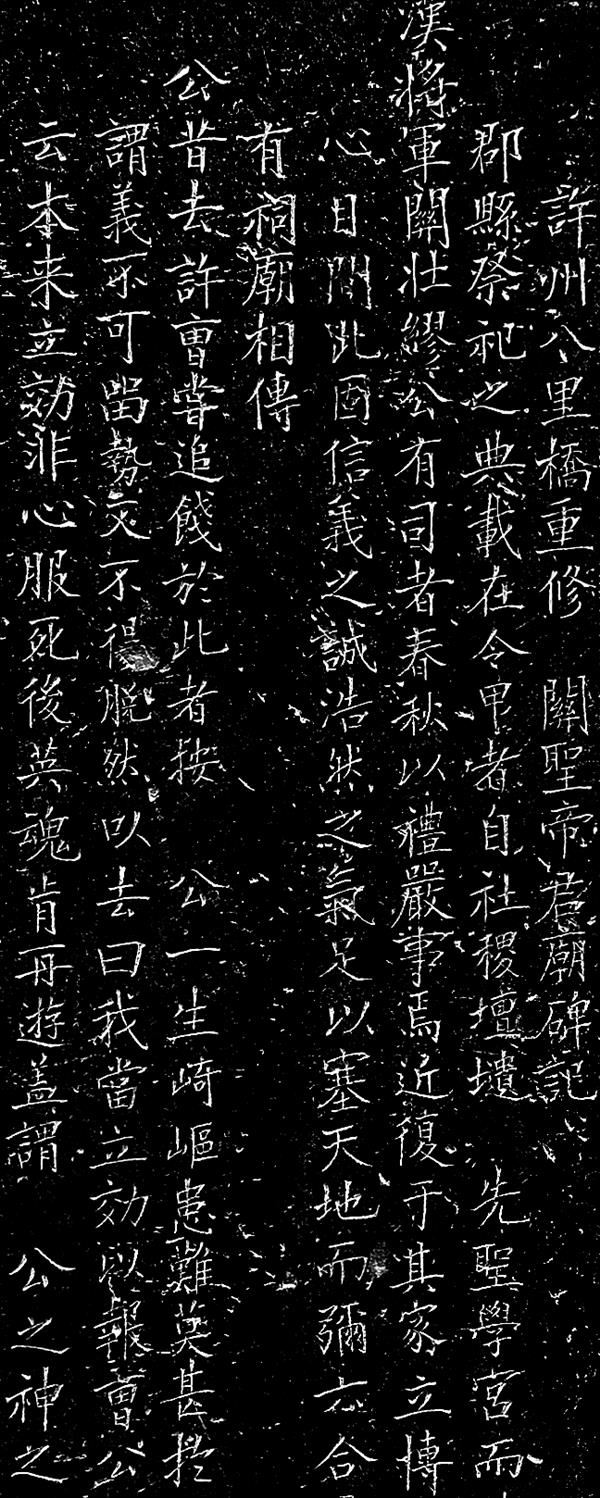 許州八里橋重修 關聖帝君廟碑記
郡縣祭祀之典載在令甲者自社稷壇壝 先聖學宮而
漢將軍關壯繆公有司者春秋以禮嚴事焉近復于其家立博
心日間此固信義之誠浩然之氣足以塞天地而彌六合
有祠廟相傳
公昔去許曹嘗追餞於此者按 公一生崎嶇患難莫甚於
謂義不可留勢又不得脱然以去曰我當立効以報曹公
云本来立効非心服死後英魂肯再遊盖謂 公之神之